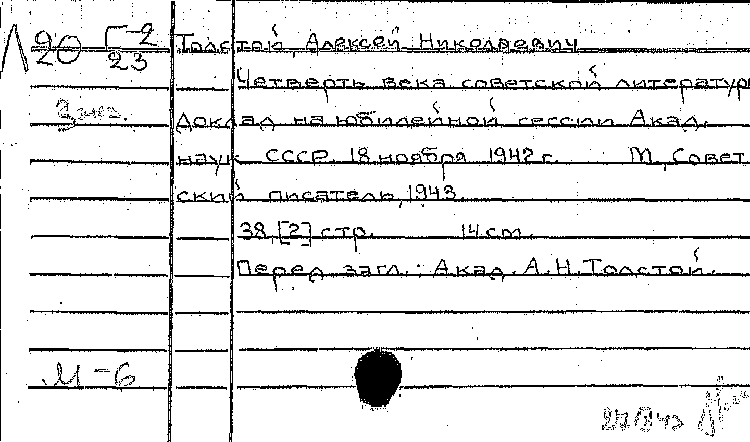 Л 20 Г-2 Толстой, Алексей Николаевич
20 23
Четверть века советской литературы
3 экз. Доклад на юбилейной сессии Акад.
наук СССР. 18 ноября 1942 г. М., Совет
ский писатель, 1943.
38, [2] стр. 14 см.
Перед загл.: Акад. А.Н.Толстой.
М-6